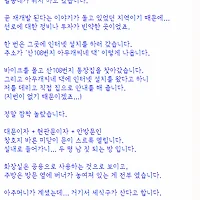 곧 재개발 된다는 이야기가 돌고 있었던 지역이기 때문에...
선로에 대한 정비나 투자가 빈약한 곳이었죠.
한 번은 그곳에 인터넷 설치를 하러 갔습니다.
주소가 '산 108번지 아무개씨네 댁' 이렇게 나옵니다.
바이크를 몰고 산108번지 통장집을 찾아갔습니다.
그리고 아무개씨네 댁에서 인터넷 설치를 왔다고 하니
저를 데리고 직접 집으로 안내를 해 줍니다.
(지번이 없기 때문이겠죠...)
정말 깜짝 놀랐습니다.
대문이자 + 현관문이자 + 안방문인
창호지 바른 미닫이 문이 스르륵 열립니다.
실내로 들어가니... 두 평 남짓 되는 방 입니다.
화장실은 공용으로 사용하는 것으로 보이고,
주방은 방문 옆에 버너가 놓여져 있는 게 전부 였습니다.
아주머니가 계셨는데... 거기서 세식구가 산다고 합니다.